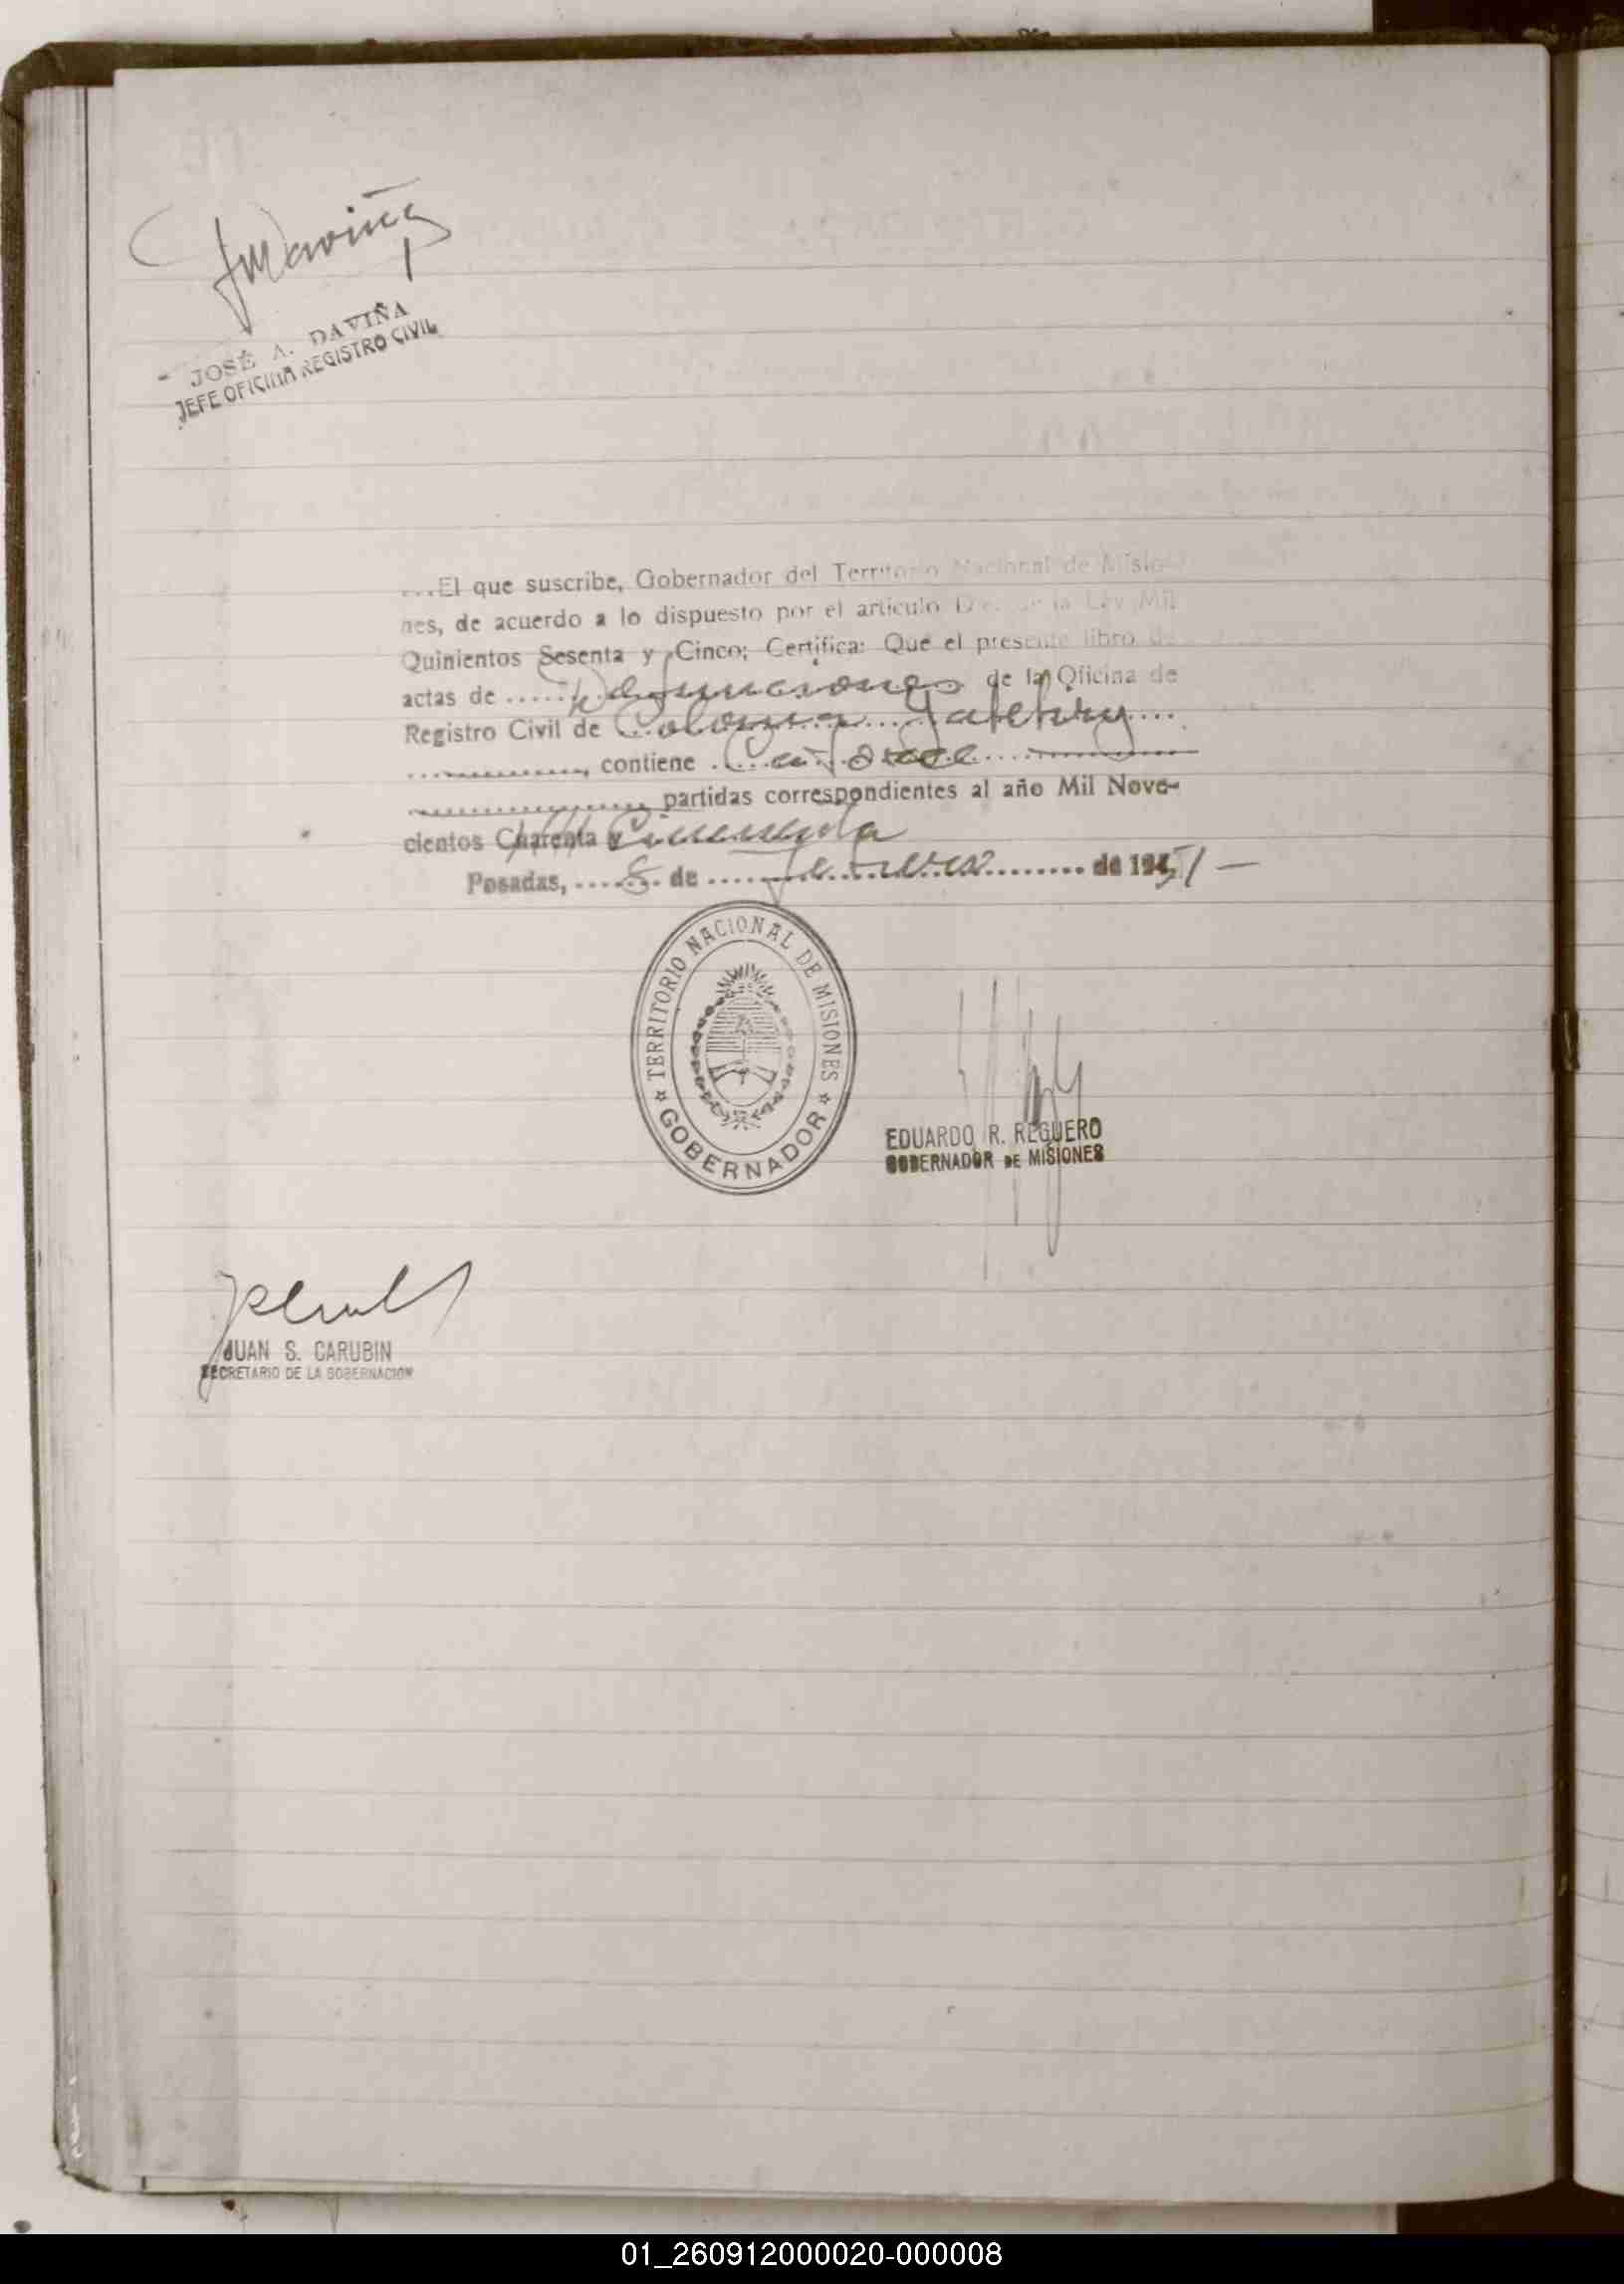 JOSÉ A. DAVIÑA
JEFE OFICINA REGISTRO CIVIL
...El que suscribe, Gobernador del Territorio Nacional de Misio-
nes, de acuerdo a lo dispuesto por el artículo la Ley Mil
Quinientos Sesenta y Cinco; Certifica: Que el presente libro de
actas de ..... Defunciones de la Oficina de
Registro Civil de Colonia
............, contiene Catorce
............ partidas correspondientes al año Mil Nove-
cientos Cuarenta y Cincuenta
Posadas, ..... 8 de ..... Enero ..... de 1951 —
TERRITORIO NACIONAL DE MISIONES
GOBERNADOR
EDUARDO R. REGUERO
GOBERNADOR DE MISIONES
JUAN S. CARUBIN
SECRETARIO DE LA GOBERNACION
01_260912000020-000008